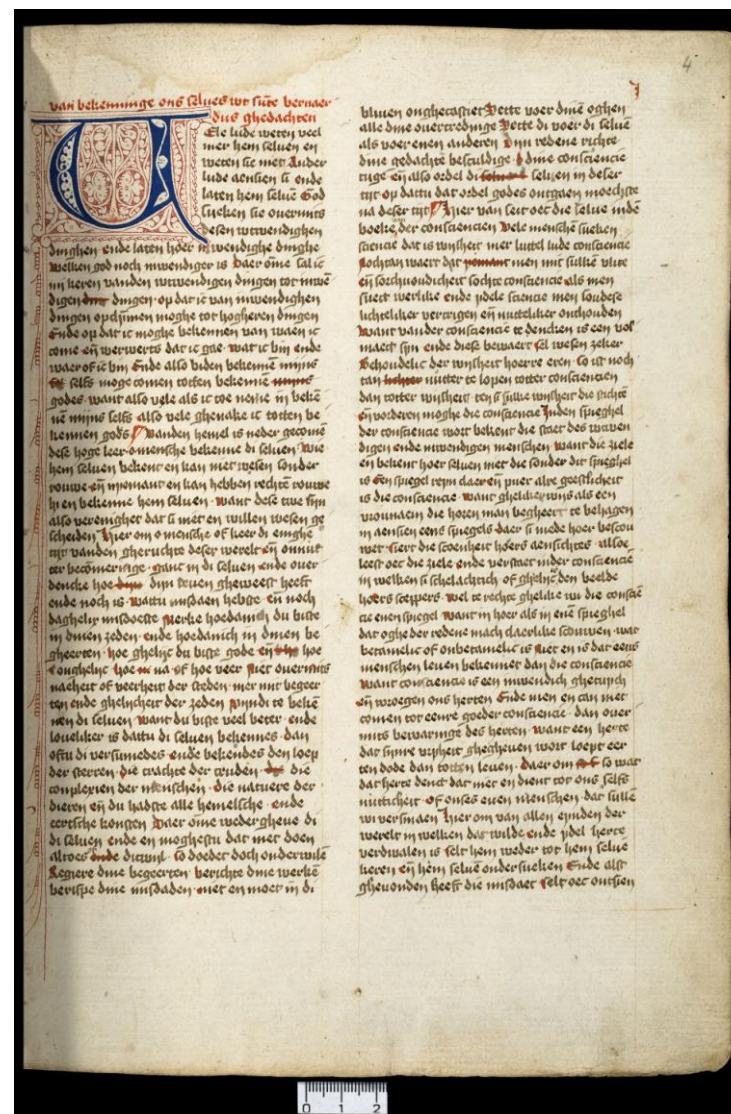 4
van bekenninge ons selues wt sute bernaer
dus ghedachten
Ele lude weten veel
mer hem seluen en
weten sie niet Ander
lude aensien si ende
laten hem seluē God
sueken sie ouermits
desen wtwendighen
dinghen ende laten hoer inwendighe dinghe
welken god noch inwendiger is Daer ōme sal ic
mi keren vanden wtwendigen dingen tot inwē
digen dingen op dat ic van inwendighen
dingen opclimmen moghe tot hogheren dingen
Ende op dat ic moghe bekennen van waen ic
come eñ werwerts dat ic gae wat ic bin ende
waer of ic bin Ende also biden bekennen mijns
selfs moge comen totten bekenne
godes want also vele als ic toe neme in bekē
nē mijns selfs also vele ghenake ic totten be
kennen gods Vanden hemel is neder gecomē
dese hoge leer o mensche bekenne di seluen wie
hem seluen bekent en kan niet wesen sonder
rouwe eñ niemant en kan hebben rechtē rouwe
hi en bekenne hem seluen want dese twe sijn
also verenighet dat si niet en willen wesen ge
scheiden Hier om o mensche of keer di enighe
tijt vanden gheruchte deser werelt eñ onnut
ter becomeringe ganc in di seluen ende ouer
dencke hoe dijn leuen gheweest heeft
ende noch is wattu misdaen hebste eñ noch
daghelix misdoeste Merke hoedanich du biste
in dinen zeden ende hoedanich in dinen be
gheerten hoe ghelijc du biste gode eñ hoe
ongheljc hoe na of hoe veer Niet ouermits
naeheit of veerheit der steden mer mit begeer
ten ende ghelicheit der zeden Pijndi te bekē
nen di seluen want du biste veel beter ende
loueliker is dattu di seluen bekennes dan
oftu di versumedes ende bekendes den loep
der sterren die crachte der cruden die
complexien der menschen die natuere der
dieren eñ du hadste alle hemelsche ende
eertsche konsten Daer ōme wedergheue di
di seluen ende en moghestu dat niet doen
altoes dicwijl so doedet doch onderwilē
Regiere dine begeerten berichte dine werkē
berispe dine misdaden niet en moet in di
bliuen onghecastiet Sette voer dinē oghen
alle dine ouertredinge Sette di voer di seluē
als voer enen anderen Dijn redene richte
dine gedachte beschuldige dine consciencie
tuge eñ also ordel di seluen in deser
tijt op dattu dat ordel godes ontgaen moechste
na deser tijt Hier van seit oec die selue indē
boeke der consciencien Vele mensche sueken
sciencie dat is wijsheit mer luttel lude consciencie
Nochtan waert dat men mit sulkē vlite
eñ sorchuoudicheit sochte consciencie als men
suect werlike ende ydele sciencie men soudese
lichteliker vercrigen eñ nutteliker onthouden
Want vander consciencie te dencken is een vol
maect sijn ende diese bewaert sel wesen zeker
Behoudelic der wijsheit hoerre eren so ist noch
tan nutter te lopen totter consciencien
dan totter wijsheit ten si sulke wijsheit die stichtē
eñ vorderen moghe die consciencie Inden spieghel
der consciencie wort bekent die staet des wtwen
digen ende inwendigen menschen want die ziele
en bekent hoer seluen niet die sonder dit spieghel
is Een spiegel reyn claer eñ puer alre geestlicheit
is die consciencie want ghelikerwijs als een
vrouwaem die horen man begheert te behagen
in aensien eens spiegels daer si mede hoer bescou
wet siert die scoenheit hoers aensichtes alsoe
leest oec die ziele ende verstaet inder consciencie
in welken si schelachtich of ghelijc den beelde
hoers sceppers wel te rechte ghelike wi die consciē
cie enen spiegel want in hoer als in enē spieghel
dat oghe der redene mach claerlike scouwen wat
betamelic of onbetamelic is Niet en is dat eens
menschen leuen bekennet dan die consciencie
want consciencie is een inwendich ghetuych
eñ wroegen ons herten Ende men en can niet
comen tot eenre goeder consciencie dan ouer
mits bewaringe des herten want een herte
dat sijnre vrijheit ghegheuen wort loept eer
ten dode dan totten leuen daer om so wat
dat herte denct dat niet en dient tot ons selfs
nutticheit of onses euen menschen dat sullē
wi versmaen Hier om van allen eynden der
werelt in welken dat wilde ende ydel herte
verdwalen is selt hem weder tot hem seluē
keren eñ hem seluē ondersueken Ende alst
gheuonden heeft die misdaet selt oec ontsien
0 1 2